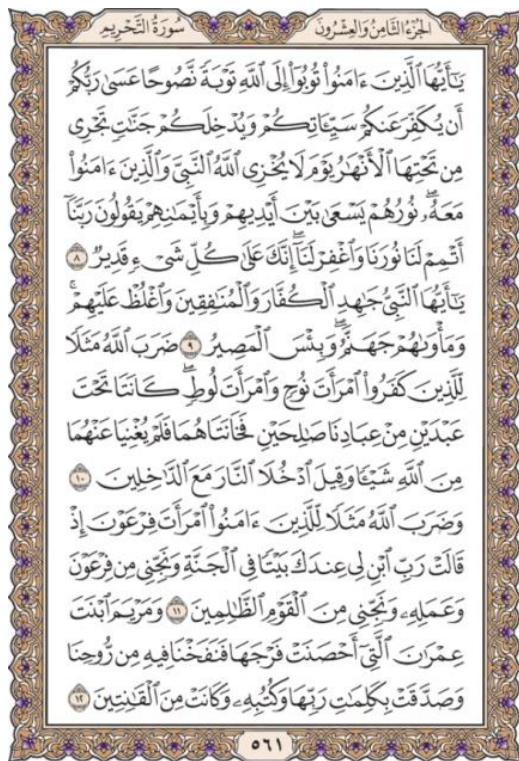 سُورَةُ التَّحْرِيمِ
الجُزْءُ الثَّامِنُ وَالعِشْرُونَ
يَـٰٓأَيُّهَا ٱلَّذِينَ ءَامَنُوا۟ تُوبُوٓا۟ إِلَى ٱللَّهِ تَوْبَةً نَّصُوحًا عَسَىٰ رَبُّكُمْ
أَن يُكَفِّرَ عَنكُمْ سَيِّـَٔاتِكُمْ وَيُدْخِلَكُمْ جَنَّـٰتٍ تَجْرِى
مِن تَحْتِهَا ٱلْأَنْهَـٰرُ يَوْمَ لَا يُخْزِى ٱللَّهُ ٱلنَّبِىَّ وَٱلَّذِينَ ءَامَنُوا۟
مَعَهُۥ ۖ نُورُهُمْ يَسْعَىٰ بَيْنَ أَيْدِيهِمْ وَبِأَيْمَـٰنِهِمْ يَقُولُونَ رَبَّنَآ
أَتْمِمْ لَنَا نُورَنَا وَٱغْفِرْ لَنَآ ۖ إِنَّكَ عَلَىٰ كُلِّ شَىْءٍ قَدِيرٌ ٨
يَـٰٓأَيُّهَا ٱلنَّبِىُّ جَـٰهِدِ ٱلْكُفَّارَ وَٱلْمُنَـٰفِقِينَ وَٱغْلُظْ عَلَيْهِمْ ۚ
وَمَأْوَىٰهُمْ جَهَنَّمُ ۖ وَبِئْسَ ٱلْمَصِيرُ ٩ ضَرَبَ ٱللَّهُ مَثَلًا
لِّلَّذِينَ كَفَرُوا۟ ٱمْرَأَتَ نُوحٍ وَٱمْرَأَتَ لُوطٍ ۖ كَانَتَا تَحْتَ
عَبْدَيْنِ مِنْ عِبَادِنَا صَـٰلِحَيْنِ فَخَانَتَاهُمَا فَلَمْ يُغْنِيَا عَنْهُمَا
مِنَ ٱللَّهِ شَيْـًٔا وَقِيلَ ٱدْخُلَا ٱلنَّارَ مَعَ ٱلدَّٰخِلِينَ ١٠
وَضَرَبَ ٱللَّهُ مَثَلًا لِّلَّذِينَ ءَامَنُوا۟ ٱمْرَأَتَ فِرْعَوْنَ إِذْ
قَالَتْ رَبِّ ٱبْنِ لِى عِندَكَ بَيْتًا فِى ٱلْجَنَّةِ وَنَجِّنِى مِن فِرْعَوْنَ
وَعَمَلِهِۦ وَنَجِّنِى مِنَ ٱلْقَوْمِ ٱلظَّـٰلِمِينَ ١١ وَمَرْيَمَ ٱبْنَتَ
عِمْرَٰنَ ٱلَّتِىٓ أَحْصَنَتْ فَرْجَهَا فَنَفَخْنَا فِيهِ مِن رُّوحِنَا
وَصَدَّقَتْ بِكَلِمَـٰتِ رَبِّهَا وَكُتُبِهِۦ وَكَانَتْ مِنَ ٱلْقَـٰنِتِينَ ١٢
٥٦١